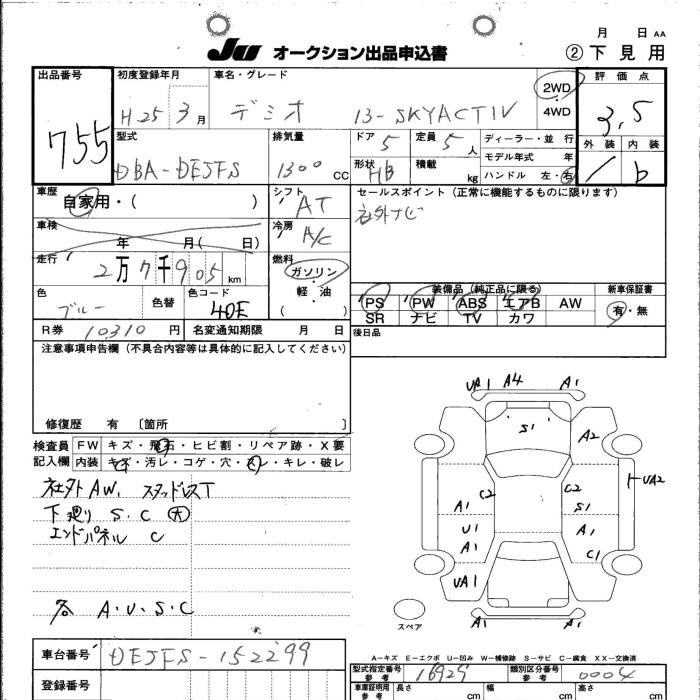 月 日 AA
JU オークション出品申込書 ② 下見用
出品番号 755
初度登録年月 H.25 3月
車名・グレード デミオ 13-SKYACTIV
2WD
4WD
評価点 3.5
外装 内装
/ b
型式 DBA-DEJFS
排気量 1300 CC
ドア 5
定員 5人
形状 HB
積載 kg
ディーラー・並行
モデル年式 年
ハンドル 左・右
車歴 自家用・( )
シフト AT
セールスポイント (正常に機能するものに限ります)
社外ナビ
車検 年 月( 日)
冷房 A/C
走行 2万7千905km
燃料 ガソリン・軽・油 ( )
色 ブルー
色替
色コード 40E
装備品 (純正品に限る)
PS PW ABS エアB AW
SR ナビ TV カワ
新車保証書
有・無
R券 10310円
名変通知期限 月 日
後日品
注意事項申告欄 (不具合内容等は具体的に記入してください)
修復歴 有 [箇所 ]
検査員記入欄
FW キズ・飛石・ヒビ割・リペア跡・X要
内装 キズ・汚レ・コゲ・穴・スレ・キレ・破レ
社外AW, スタッドレスT
下廻り S.C 大
エンドパネル C
各 A.U.S.C
UA1 A4 A1
S1
A2
UA2
C2 C2
A1 S1
U1 A1
A1 C1
UA1
A1 A1
スペア
A-キズ E-エクボ U-凹み W-補修跡 S-サビ C-腐食 XX-交換済
車台番号 DEJFS-152299
登録番号
型式指定番号 参考 16929
類別区分番号 参考 0004
車庫証明用 参考
長さ cm
幅 cm
高さ cm